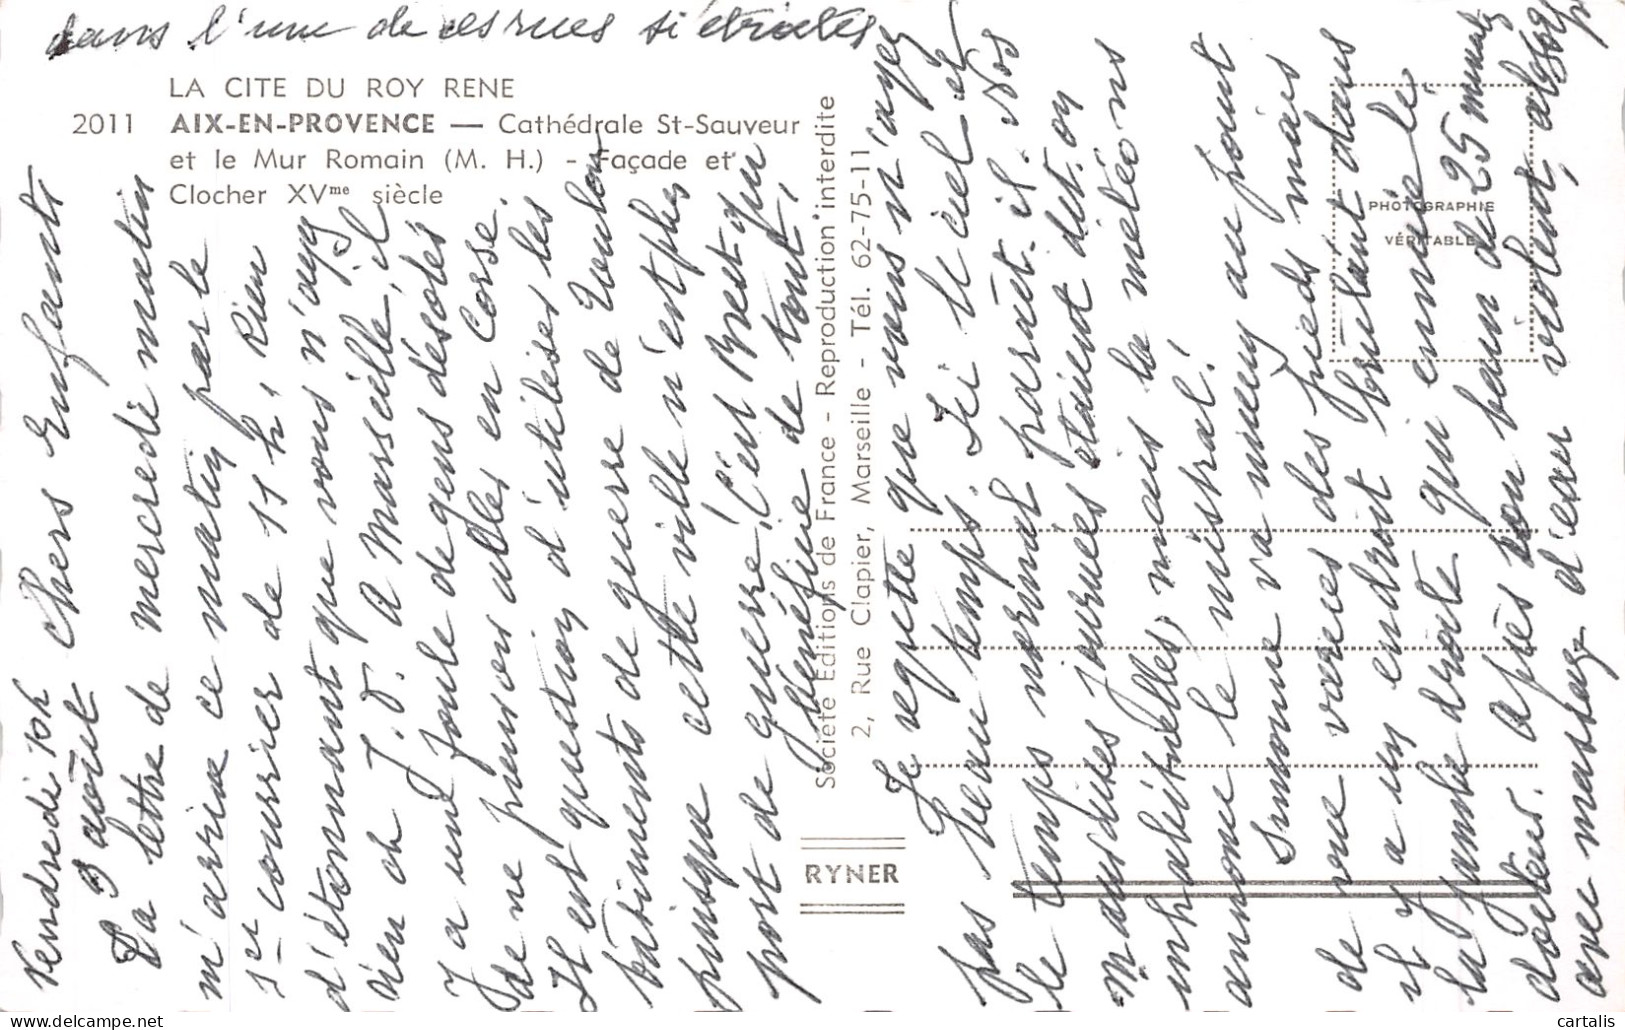 dans l'une de ces rues si étroites
LA CITE DU ROY RENE
2011 AIX-EN-PROVENCE — Cathédrale St-Sauveur
et le Mur Romain (M. H.) - Façade et
Clocher XVme siècle
Vendredi 10h
3 août
Chers Enfants
La lettre de mercredi matin
m'arrive ce matin par le
1er courrier de 11 h, Rien
d'étonnant que vous n'ayez
rien eh J.J. A Marseille, il
y a une foule de gens désolés
de ne pouvoir aller en Corse.
Il est question d'utiliser les
bâtiments de guerre de Toulon
puisque cette ville n'est plus
port de guerre, c'est Brest qui
bénéficie de tout,
Société Editions de France - Reproduction interdite
2, Rue Clapier, Marseille - Tél. 62-75-11
RYNER
PHOTOGRAPHIE
VÉRITABLE
Je regrette que vous n'ayez
pas beau temps. Ici le ciel et
le temps normal paraît-il. Nos
maudites journées étaient dit-on
inhabituelles, mais la météo ns
annonce le mistral!
Simone va mieux au point
de vue varices des pieds mais
il y a un endroit brûlant dans
la jambe droite qui ennuie le
docteur. Après son bain de 25 minutes
avec massage d'eau violent,